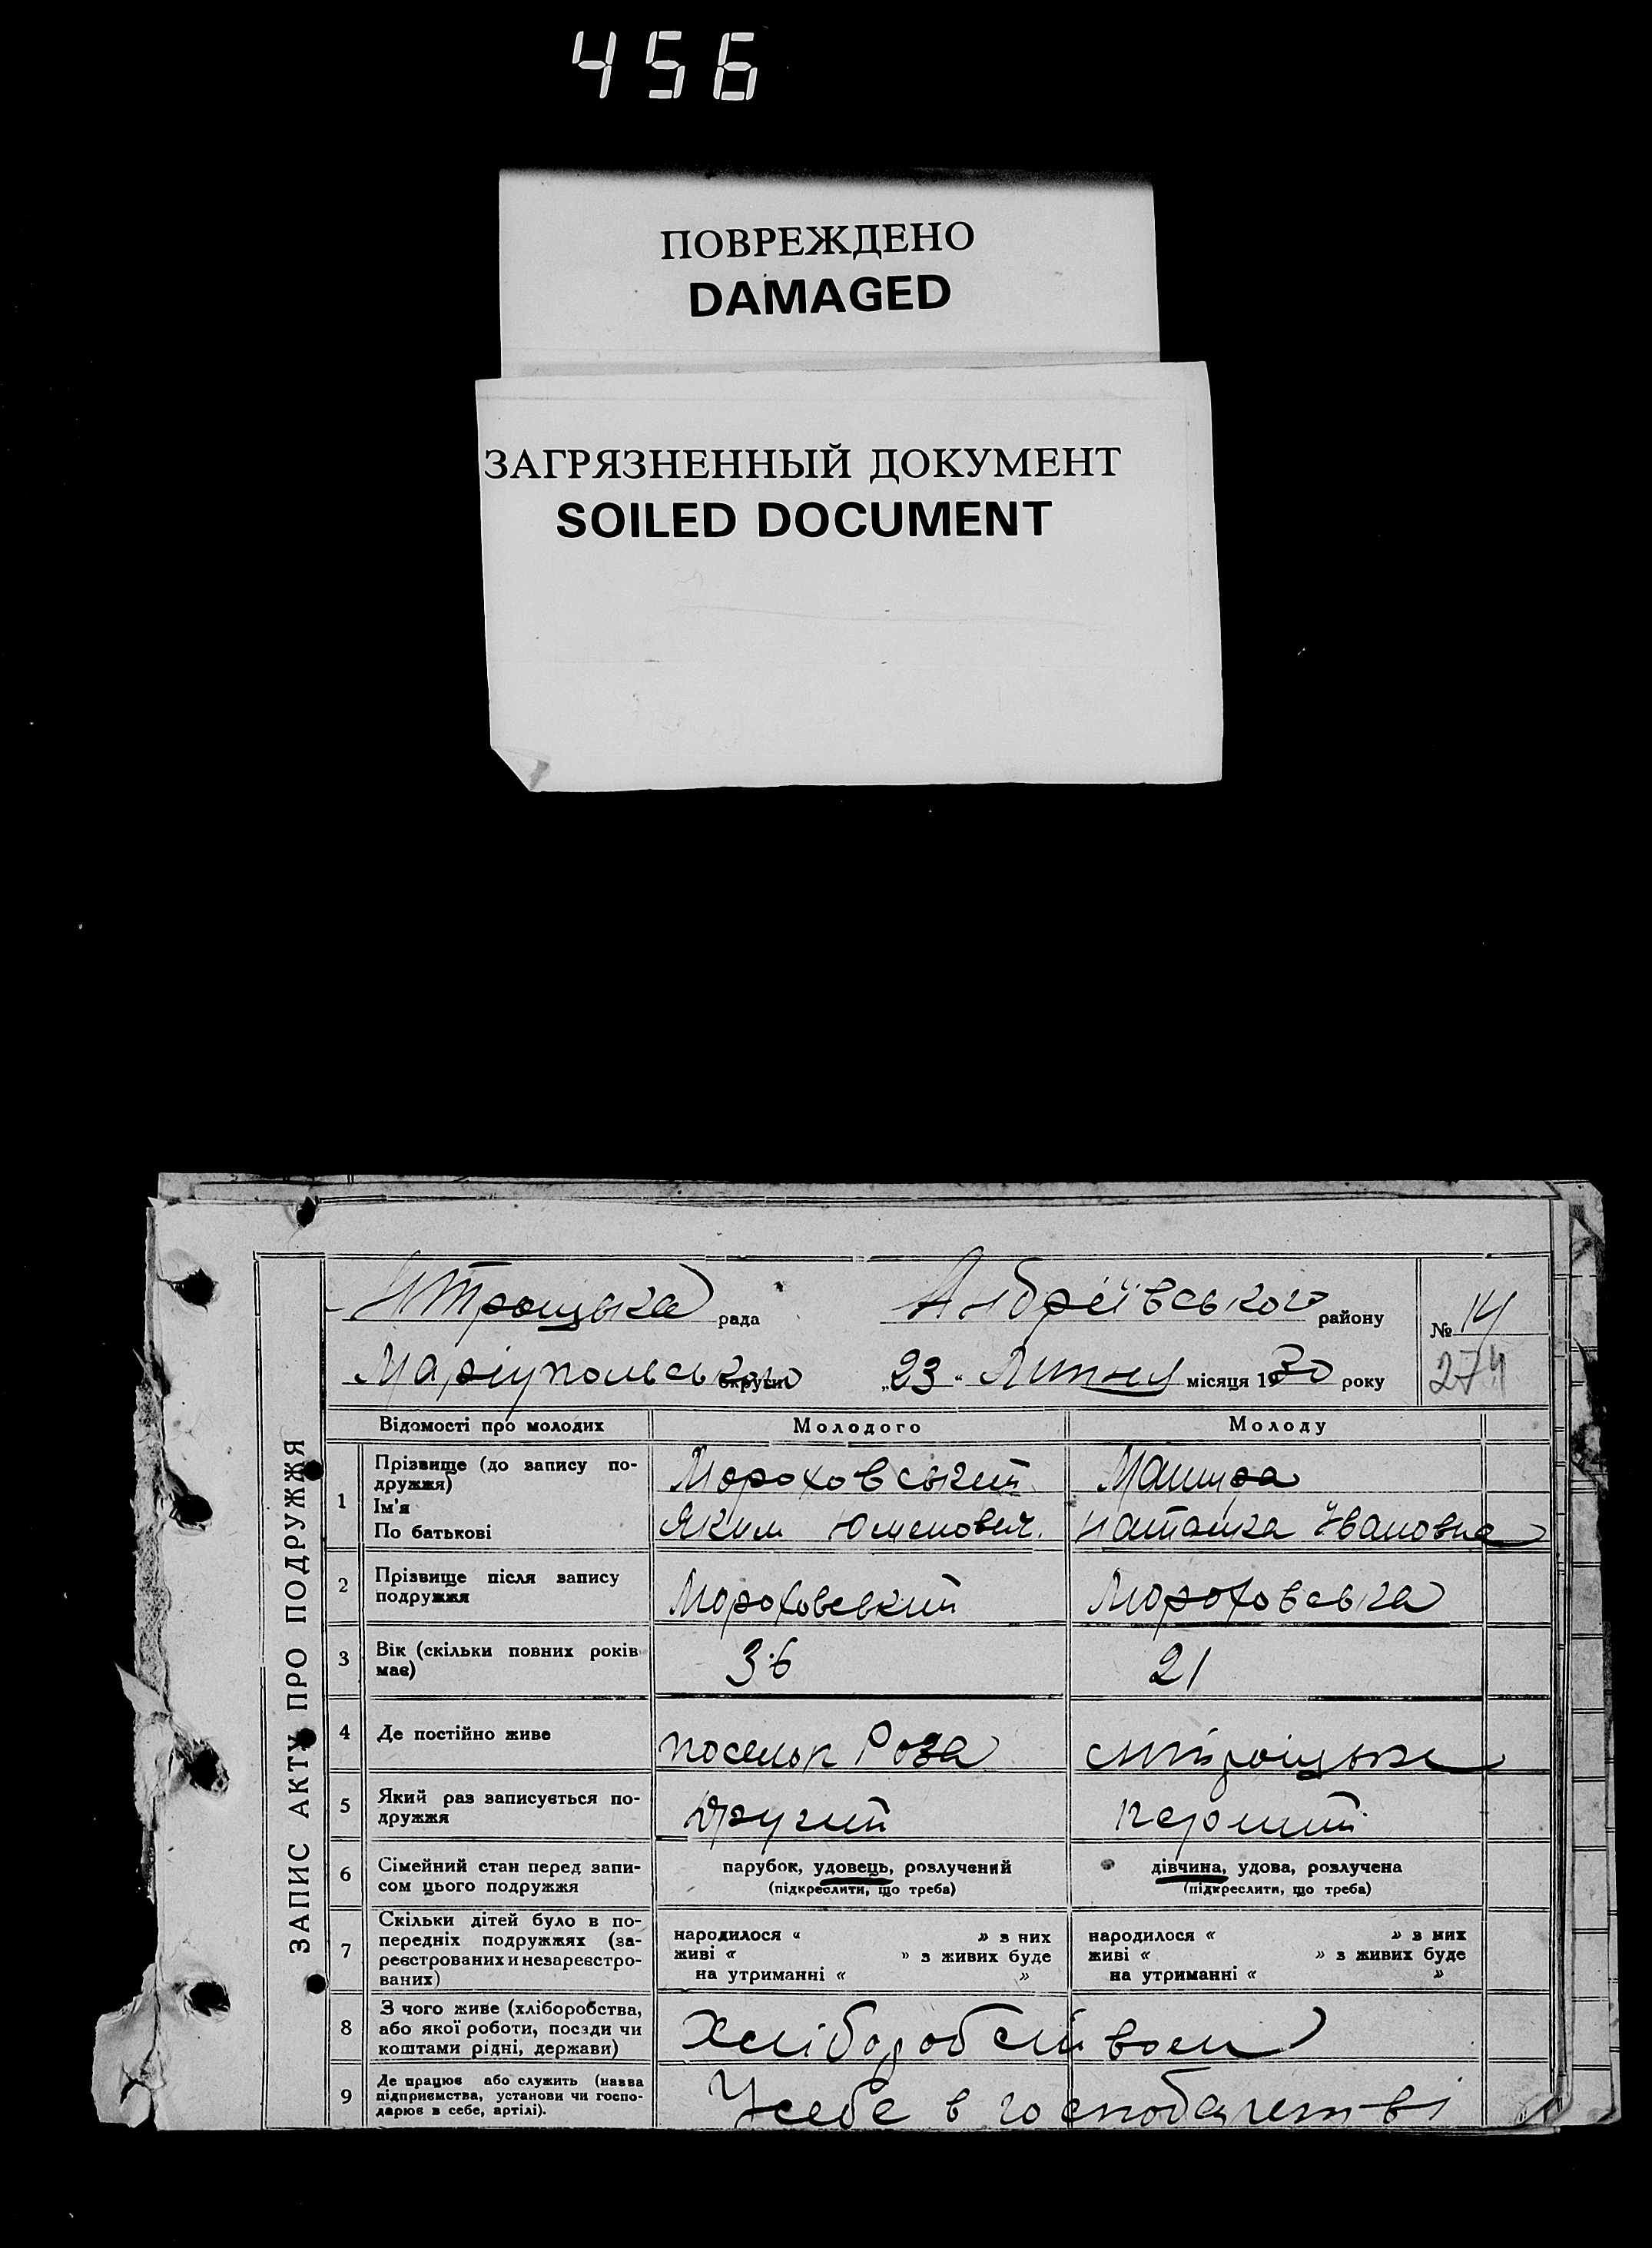 456
ПОВРЕЖДЕНО
DAMAGED
ЗАГРЯЗНЕННЫЙ ДОКУМЕНТ
SOILED DOCUMENT
ЗАПИС АКТУ ПРО ПОДРУЖЖЯ
рада Андріївського району № 14
Маріупольського округи „23“ Липня місяця 1930 року 274
Відомості про молодих Молодого Молоду
1 Прізвище (до запису по-
дружжя)
Ім'я
По батькові
Мороховський Мацура
Яким Наталка Івановна
2 Прізвище після запису
подружжя
Мороховський Мороховська
3 Вік (скільки повних років
має)
36 21
4 Де постійно живе
посельок Роза
5 Який раз записується по-
дружжя
другий перший
6 Сімейний стан перед запи-
сом цього подружжя
парубок, удовець, розлучений дівчина, удова, розлучена
(підкреслити, що треба) (підкреслити, що треба)
7 Скільки дітей було в по-
передніх подружжях (за-
реєстрованих и незареєстро-
ваних)
народилося « » в них народилося « » в них
живі « » з живих буде живі « » з живих буде
на утриманні « » на утриманні « »
8 З чого живе (хліборобства,
або якої роботи, посади чи
коштами рідні, держави)
Хліборобством
9 Де працює або служить (назва
підприємства, установи чи госпо-
дарює в себе, артілі).
У себе в господарстві